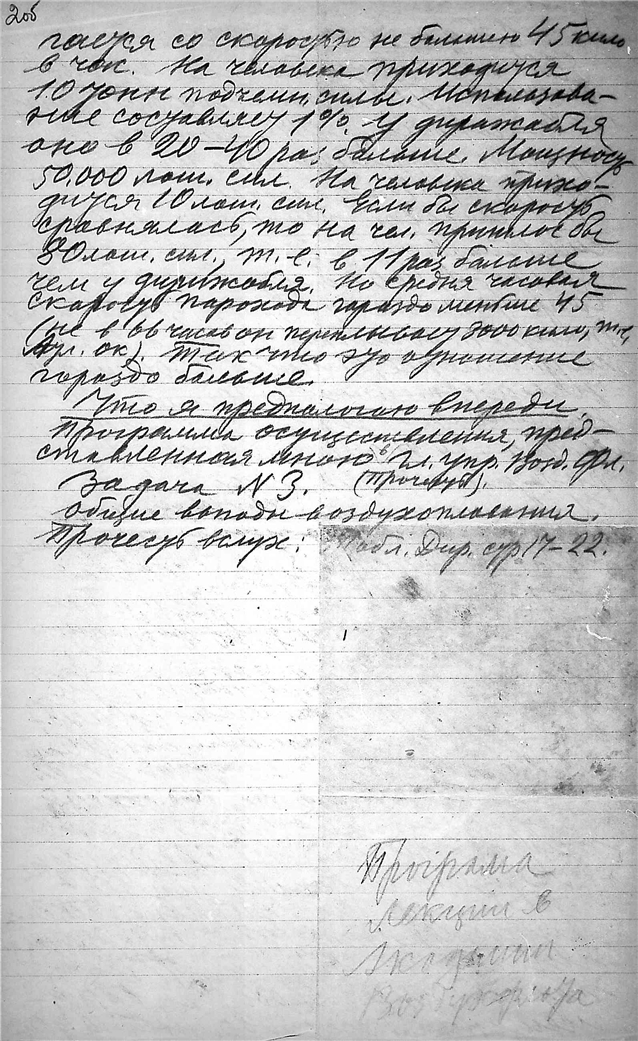 2об
гается со скоростью не большею 45 кило.
в час. На человека приходится
10 тонн подъемн. силы. Использова-
ние составляет 1%. У дирижабля
оно в 20–40 раз больше. Мощность
50.000 лош. сил. На человека прихо-
дится 10 лош. сил. Если бы скорость
сравнялась, то на чел. пришлось бы
80 лош. сил, т. е. в 11 раз больше
чем у дирижабля. Но средня часовая
скорость парохода гораздо меньше 45
в часов он переплывает 3000 кило, т.е.
ок). Так что это отношение
гораздо больше.
Что я предпологаю впереди.
Программа осуществления, пред-
ставленная мною в Гл. упр. Возд. Фл.
Задача N 3. (Прочесть).
Общие выводы воздухоплавания.
Прочесть вслух: Дир. стр 17–22.
Программа
лекции в
Академии
Воздухфлота